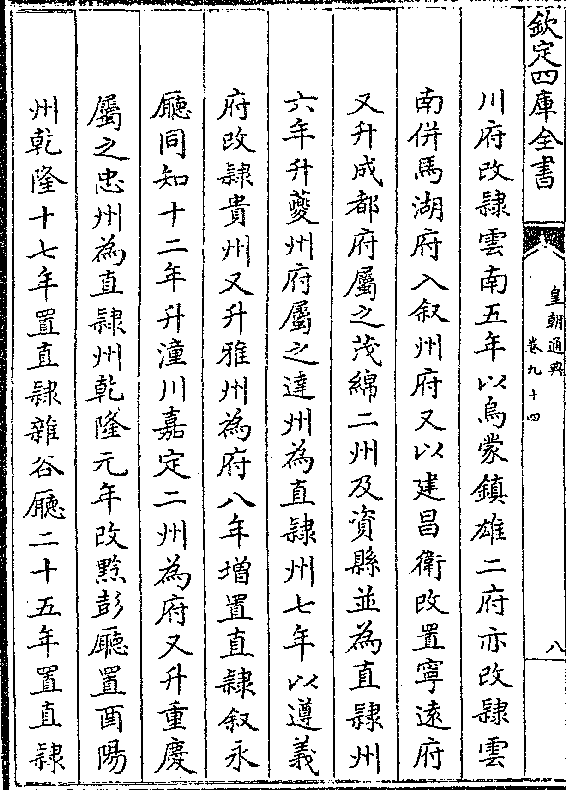 欽定四庫全書
皇朝通典
卷九十四
八
川府改隸雲南五年以烏蒙鎮雄二府亦改隸雲
南併馬湖府入叙州府又以建昌衛改置寧遠府
又升成都府屬之茂綿二州及資縣並為直隸州
六年升夔州府屬之達州為直隸州七年以遵義
府改隸貴州又升雅州為府八年增置直隸叙永
廳同知十二年升潼川嘉定二州為府又升重慶
屬之忠州為直隸州乾隆元年改黔彭廳置酉陽
州乾隆十七年置直隸雜谷廳二十五年置直隸